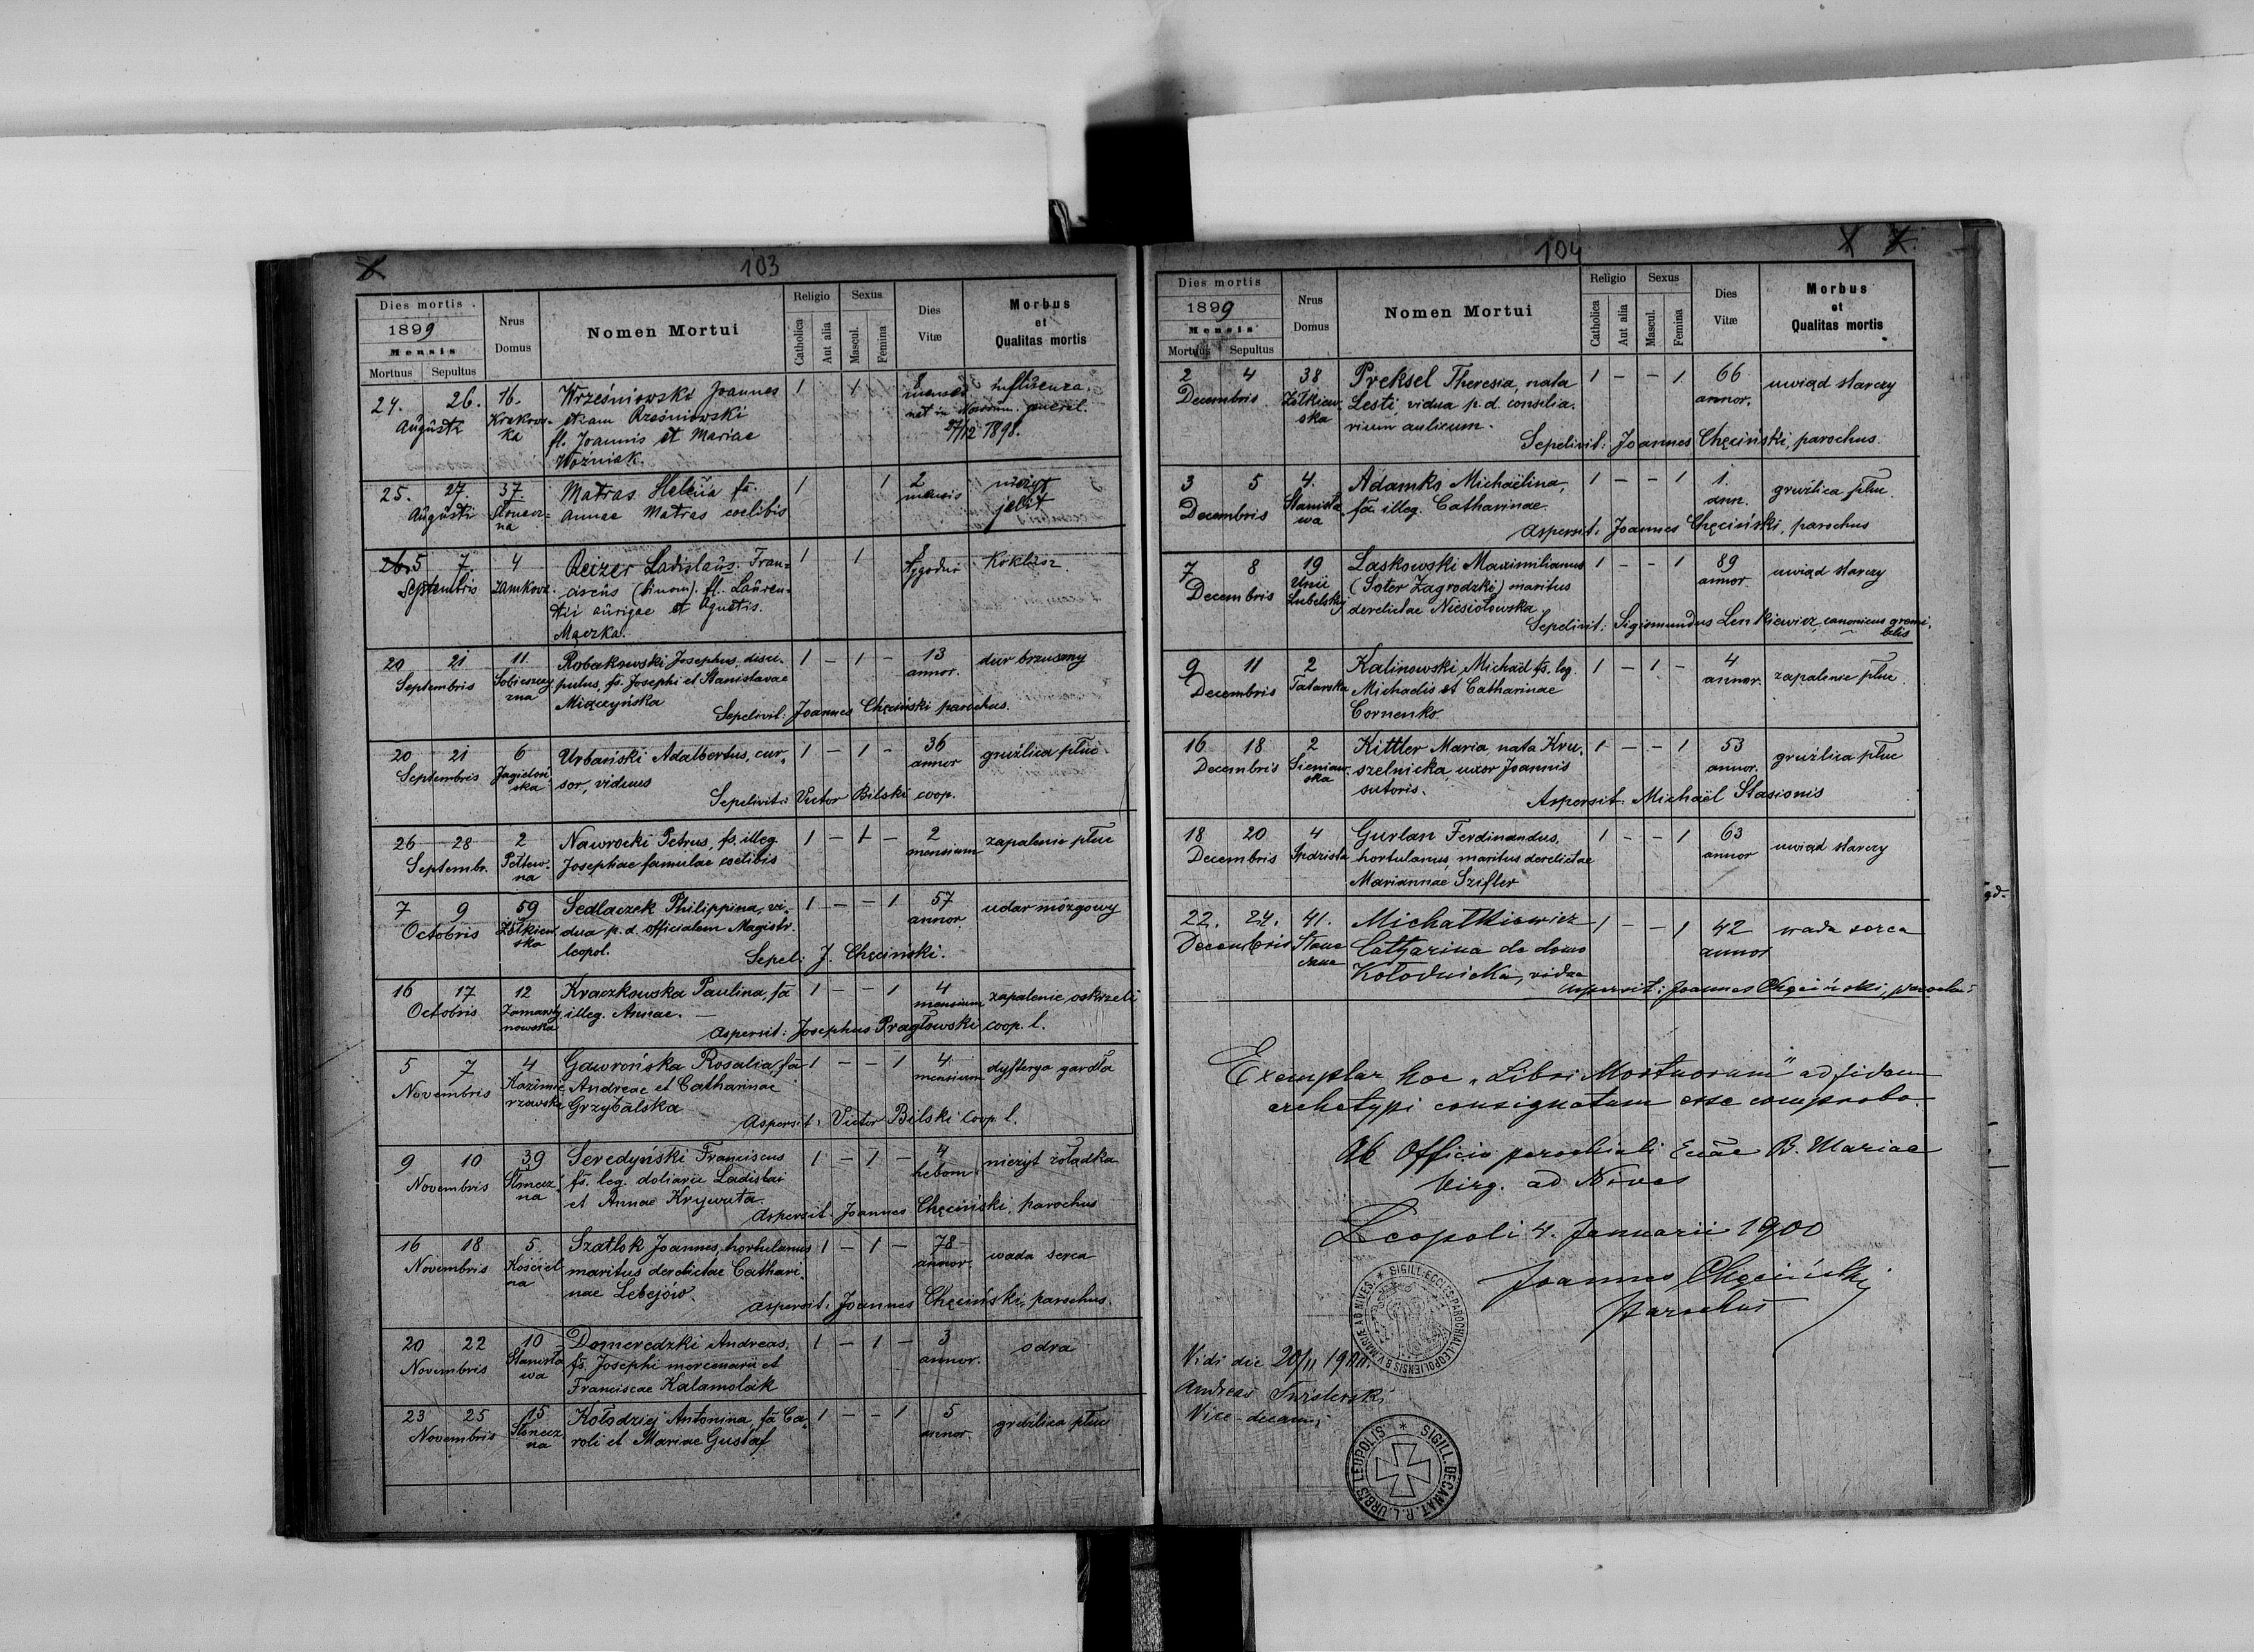 103
Dies mortis
1899
Mensis
Mortuus Sepultus
Nrus Domus
Nomen Mortui
Religio
Catholica
Aut alia
Sexus
Mascul.
Femina
Dies Vitæ
Morbus et Qualitas mortis
24. 26. 16. Wrześniowski Joannes 1 1 8 influenza
Augusti Krakows- etiam Rześniowski menses
ka fl. Joannis et Mariae 27/12 1898.
Woźniak.
25. 27. 37. Matras Helena fa. 1 1 2 nieżyt
Augusti Słonecz- Annae Matras coelibis mensis jelit
na
5 7. 4 Reizer Ladislaus Fran- 1 1 8 Koklusz
Septembris Zamkow. ciscus (binom). fl. Lauren-
tii aurigae et Agnetis
Mączka.
20 21 11 Robakowski Josephus, disci- 1 - 1 - 13 dur brzuszny
Septembris pulus, fs. Josephi et Stanislavae annor.
zna Miączyńska
Sepelivit: Joannes Chęciński parochus.
20 21 6 Urbański Adalbertus, cur- 1 - 1 - 36 gruźlica płuc
Septembris Jagieloń- sor, viduus annor
ska Sepelivit: Victor Bilski coop.
26 28 2 Nawrocki Petrus, fs. illeg. 1 - 1 - 2 zapalenie płuc
Septembr. Pełtew- Josephae famulae coelibis mensium
na
7 9 59 Sedlaczek Philippina, vi- 1 - - 1 57 udar mózgowy
Octobris Żółkiew dua p. d. officialem Magistr. annor.
ska leopol. Sepel: J. Chęciński.
16 17 12 Kraczkowska Paulina, fa 1 - - 1 4 zapalenie oskrzeli
Octobris Zamarsty illeg. Annae. - mensium
nowska Aspersit: Josephus Pragłowski coop. l.
5 7 4 Gawrońska Rosalia, fa 1 - - 1 4 dyfterya gardła
Novembris Kazimie Andreae et Catharinae mensium
rzowska Grzybalska
Aspersit: Victor Bilski Coop. l.
9 10 39 Seredyński Franciscus 1 - 1 - 4 nieżyt żołądka
Novembris Słonecz- fs. leg. doliarii Ladislai hebom.
na et Annae Krywuta.
Aspersit: Joannes Chęciński, parochus
16 18 5. Szatlok Joannes, hortulanus 1 - 1 - 78 wada serca
Novembris Kościel maritus derelictae Cathari- annor.
na nae Lebejów.
Aspersit: Joannes Chęciński, parochus.
20 22 10 Domeredzki Andreas, 1 - 1 - 3 odra
Novembris Stanisła fs. Josephi mercenarii et annor.
wa Franciscae Kalamolak
23 25 15 Kołodziej Antonina, fa Ca- 1 - - 1 5 gruźlica płuc
Novembris Słonecz roli et Mariae Gustaf annor.
na
104
Dies mortis
1899
Mensis
Mortuus Sepultus
Nrus Domus
Nomen Mortui
Religio
Catholica
Aut alia
Sexus
Mascul.
Femina
Dies Vitæ
Morbus et Qualitas mortis
2 4 38 Preksel Theresia, nata 1 - - 1 66 uwiąd starczy
Decembris Żółkiew- Lesti, vidua p. d. consilia- annor.
ska rium aulicum.
Sepelivit: Joannes Chęciński, parochus.
3 5 4. Adamko Michaëlina, 1 - - 1 1. gruźlica płuc.
Decembris Stanisła fa illeg. Catharinae. ann.
wa Aspersit: Joannes Chęciński, parochus
7 8 19 Laskowski Maximilianus 1 - - 1 89 uwiąd starczy
Decembris Unii (Soter Zagrodzki) maritus annor
Lubelskiej derelictae Niesiołowska
Sepelivit: Sigismundus Lenkiewicz, canonicus gremi-
9 11 2 Kalinowski Michaël fs. leg. 1 - 1 - 4 zapalenie płuc
Decembris Tatarska Michaelis et Catharinae annor.
Cornenko
16 18 2 Kittler Maria nata Kru- 1 - - 1 53 gruźlica płuc
Decembris Sieniaw- szelnicka uxor Joannis annor.
ska sutoris. Aspersit: Michaël Stasionis
18 20 4 Gurlan Ferdinandus, 1 - - 1 63 uwiąd starczy
Decembris hortulanus, maritus derelictae annor
Mariannae Szifler
22. 24. 41. Michalkiewicz 1 - - 1 42 wada serca
Decembris Słone Catharina de domo annor
czna Kołodnicka, vidua
Aspersit: Joannes Chęciński, parochus
Exemplar hoc „Libri Mortuorum" ad fidem
archetypi consignatum esse comprobo.
Ab Officio parochiali Eccae B. Mariae
Virg. ad Nives
Leopoli 4. Januarii 1900
Joannes Chęciński
Parochus
SIGILL. ECCLES. PAROCHIAL. LEOPOLIENSIS B.V. MARIÆ AD NIVES.
Vidi die 20/11 1900.
Andreas
Vice-decanus
SIGILL. DECANAT. R.L. URBIS LEOPOLIS